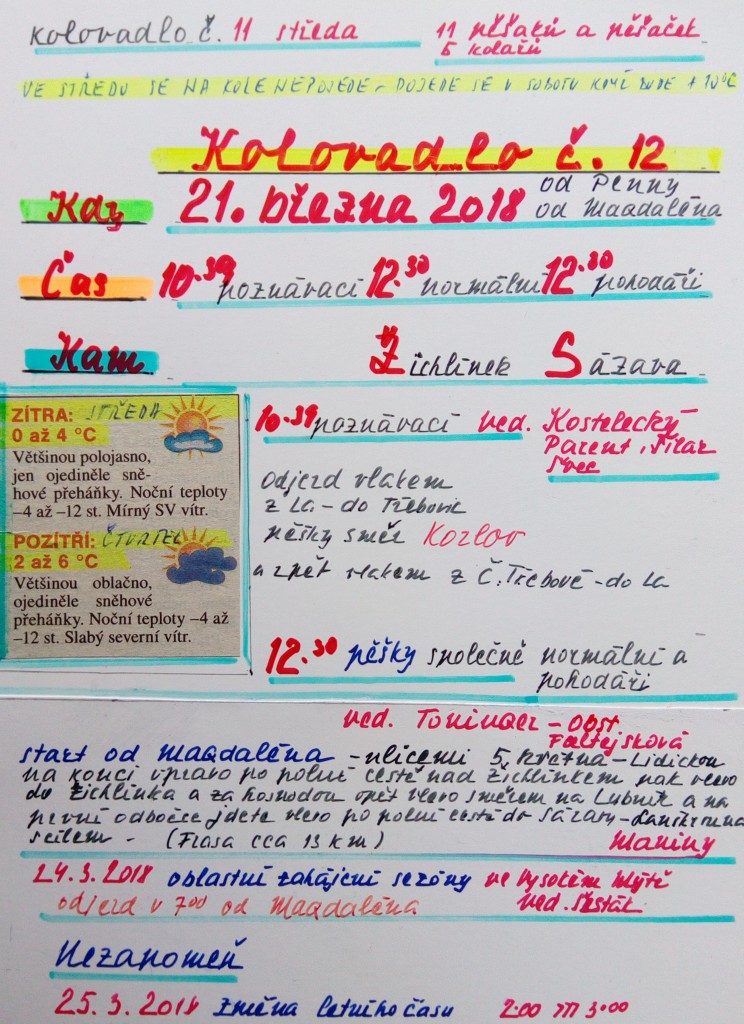 kolovadlo č. 11 středa
11 pěšaků a pěšaček
5 kolařů
VE STŘEDU SE NA KOLE NEPOJEDE - POJEDE SE V SOBOTU KDYŽ BUDE + 10°C
Kolovadlo č. 12
Kdy 21. března 2018 od Penny
od Magdaléna
Čas 10.39 poznávací 12.30 normální 12.30 pohodáři
Kam Žichlínek Sázava
ZÍTRA: STŘEDA
0 až 4 °C
Většinou polojasno,
jen ojediněle sně-
hové přeháňky. Noční teploty
–4 až –12 st. Mírný SV vítr.
POZÍTŘÍ: ČTVRTEK
2 až 6 °C
Většinou oblačno,
ojediněle sněhové
přeháňky. Noční teploty –4 až
–12 st. Slabý severní vítr.
10.39 poznávací ved. Kostelecký
Parent, Šilar
Švec
odjezd vlakem
z La - do Třebovic
pěšky směr Kozlov
a zpět vlakem z Č. Třebové - do La
12.30 pěšky společně normální a
pohodáři
ved. Toninger - Obst
Faltejsková
start od Magdaléna - ulicemi 5. května - Lidickou
na konci vpravo po polní cestě nad Žichlínkem pak vlevo
do Žichlínka a za hospodou opět vlevo směrem na Lubník a na
první odbočce jdete vlevo po polní cestě do Sázavy - Lanškrouna
s cílem - (Trasa cca 13 km) Maniny
24.3.2018 oblastní zahájení sezóny ve Vysokém Mýtě
odjezd v 700 od Magdaléna ved. Šesták
Nezapomeň
25.3.2018 změna letního času 2.00 3.00